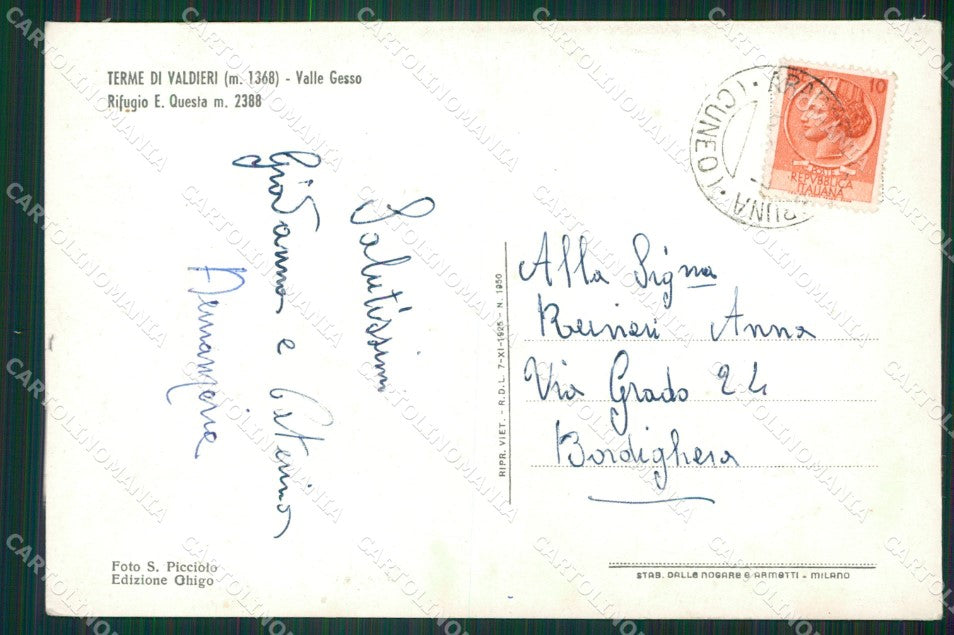 TERME DI VALDIERI (m. 1368) - Valle Gesso
Rifugio E. Questa m. 2388
Salutissimi
Giovanna e
Annamaria
Foto S. Picciolo
Edizione Ghigo
RIPR. VIET. - R.D.L. 7-XI-1925 - N. 1950
10
POSTE
REPUBBLICA
ITALIANA
(CUNEO)
Alla Sig.na
Raineri Anna
Via Grado 24
Bordighera
STAB. DALLE NOGARE E ARMETTI - MILANO
CARTOLINOMANIA